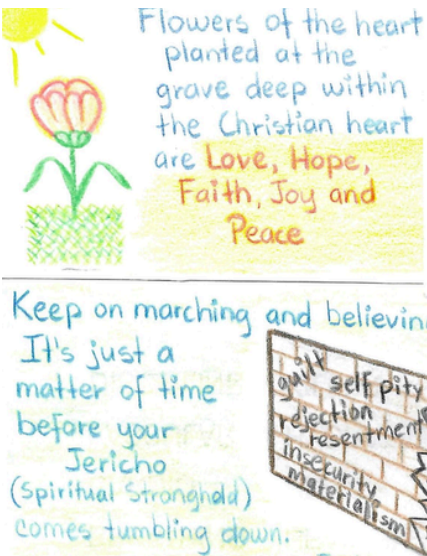 Flowers of the heart
planted at the
grave deep within
the Christian heart
are Love, Hope,
Faith, Joy and
Peace
Keep on marching and believin
It's just a
matter of time
before your
Jericho
(Spiritual Stronghold)
comes tumbling down.
guilt
self pity
rejection
resentment
insecurity
materialism